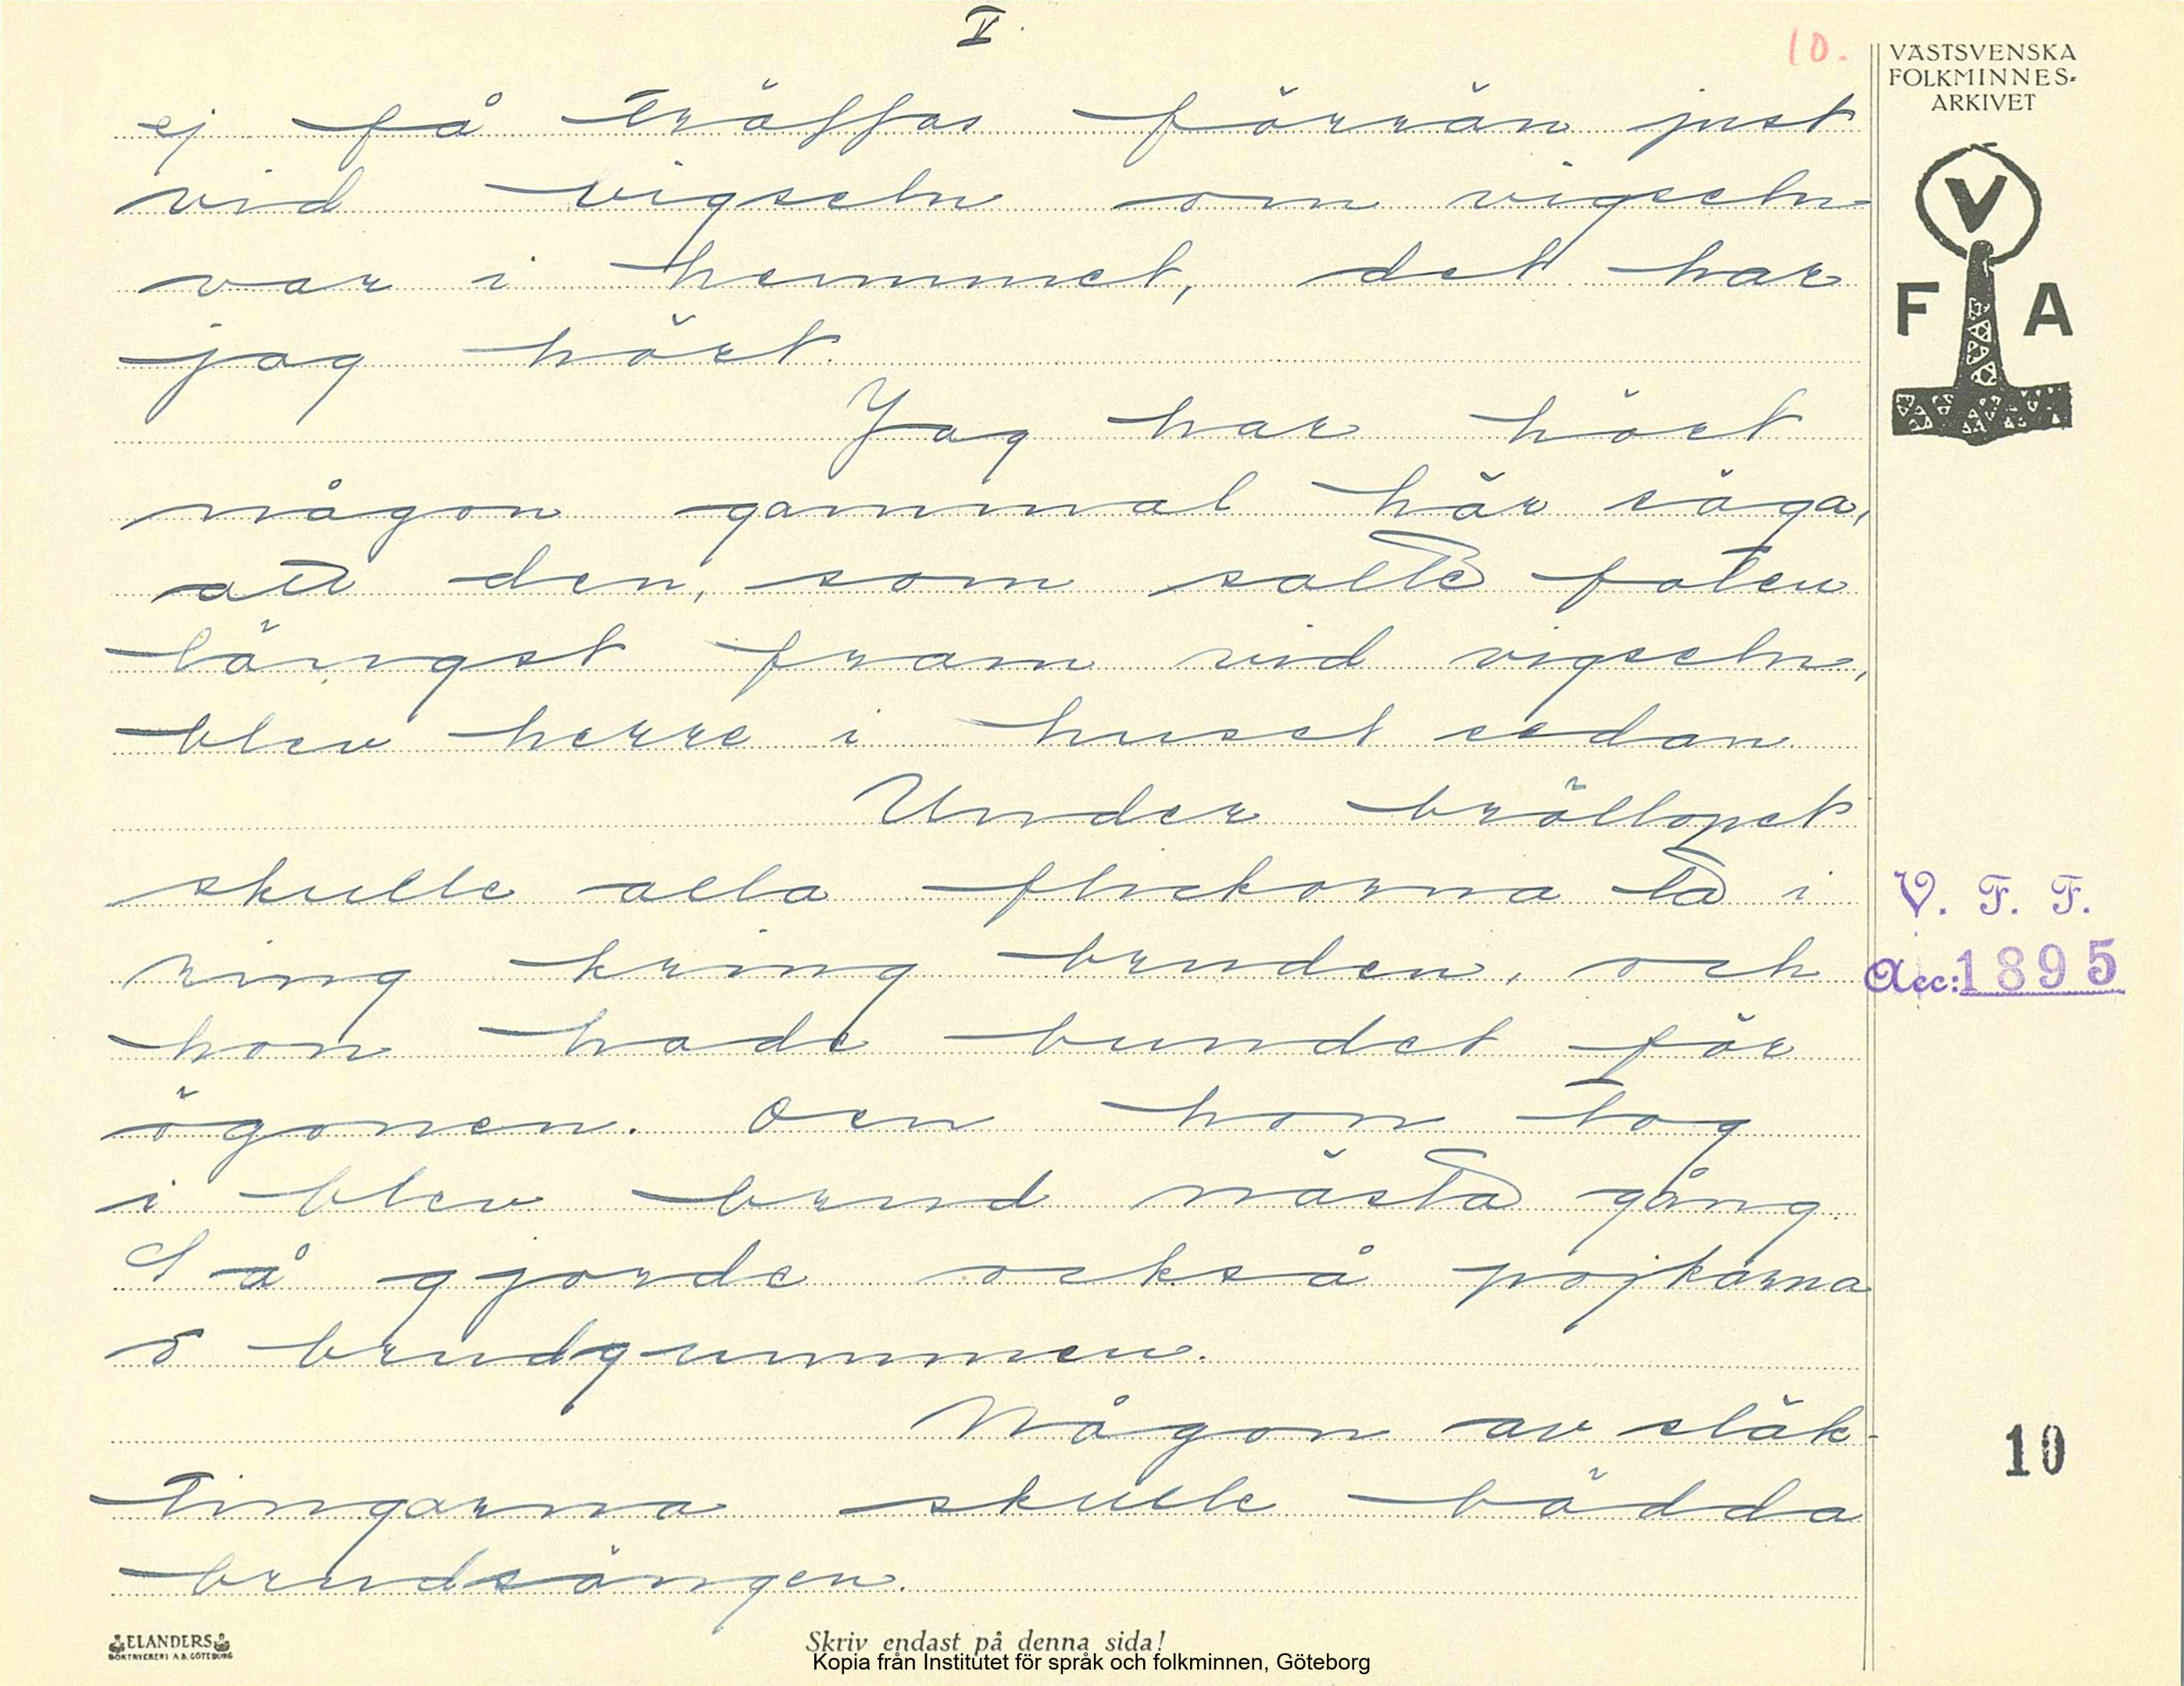 V.
10.
VÄSTSVENSKA
FOLKMINNES-
ARKIVET
V
F A
ej få träffas förrän just
vid vigseln om vigseln
var i hemmet, det har
jag hört.
Jag har hört
någon gammal här säga,
att den, som satte foten
längst fram vid vigseln,
blev herre i huset sedan.
Under bröllopet
skulle alla flickorna ta i
ring kring bruden, och
hon hade bundet för
ögonen. Den hon tog
i blev brud nästa gång.
Så gjorde också pojkarna
o brudgummen.
Någon av släk-
tingarna skulle bädda
brudsängen.
V. F. F.
Acc: 1895
10
ELANDERS
BOKTRYCKERI A.B. GÖTEBORG
Skriv endast på denna sida!
Kopia från Institutet för språk och folkminnen, Göteborg